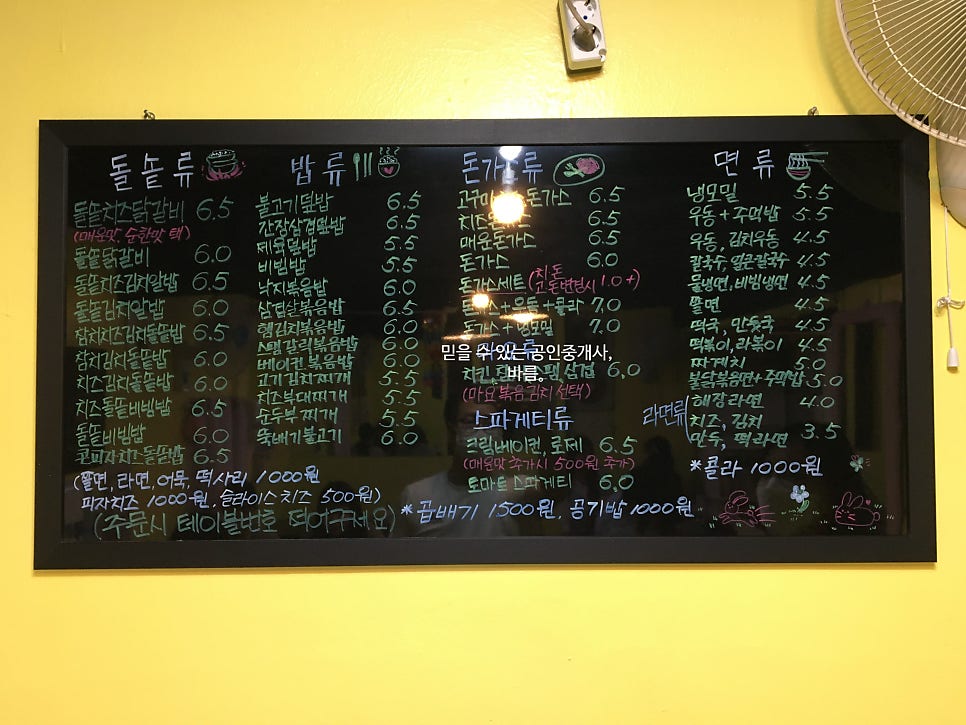 돌솥류
돌솥치즈닭갈비 6.5
(매운맛, 순한맛 택)
돌솥닭갈비 6.0
돌솥치즈김치알밥 6.5
돌솥김치알밥 6.0
참치치즈김치돌솥밥 6.5
참치김치돌솥밥 6.0
치즈김치돌솥밥 6.0
치즈돌솥비빔밥 6.5
돌솥비빔밥 6.0
콘피자치즈돌솥밥 6.5
(쫄면, 라면, 어묵, 떡사리 1000원
피자치즈 1000원, 슬라이스치즈 500원)
(주문시 테이블번호 적어주세요)
밥류
불고기덮밥 6.5
간장삼겹덮밥 6.5
제육덮밥 5.5
비빔밥 5.5
낙지볶음밥 6.0
삼겹살볶음밥 6.5
햄김치볶음밥 6.0
스팸갈릭볶음밥 6.0
베이컨볶음밥 6.0
고기김치찌개 5.5
치즈부대찌개 5.5
순두부찌개 5.5
뚝배기불고기 6.0
돈가스류
돈가스 6.5
치즈돈가스 6.5
매운돈가스 6.5
돈가스 6.0
돈가스세트 (치.돈 변경시 1.0+)
돈가스+우동+콜라 7.0
돈가스+냉모밀 7.0
6.0
(마요, 볶음김치 선택)
스파게티류
크림베이컨, 로제 6.5
(매운맛 추가시 500원 추가)
토마토스파게티 6.0
*곱배기 1500원, 공기밥 1000원
면류
냉모밀 5.5
우동+주먹밥 5.5
우동, 김치우동 4.5
칼국수, 얼큰칼국수 4.5
물냉면, 비빔냉면 4.5
쫄면 4.5
떡국, 만둣국 4.5
떡볶이, 라볶이 4.5
짜계치 5.0
불닭볶음면+주먹밥 5.0
라면류
해장라면 4.0
치즈, 김치
만두, 떡라면 3.5
*콜라 1000원
믿을 수 있는 공인중개사,
바름.